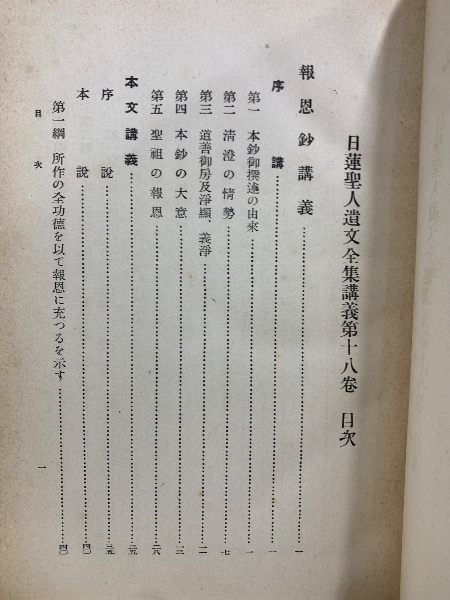 日蓮聖人遺文全集講義第十八卷　目次
報恩鈔講義……一
序講……一
第一　本鈔御撰述の由來……一
第二　淸澄の情勢……七
第三　道善御房及淨顯、義淨……一一
第四　本鈔の大意……一三
第五　聖祖の報恩……二八
本文講義……三五
序說……三五
本說……四〇
第一綱　所作の全功德を以て報恩に充つるを示す……四〇
目次　一